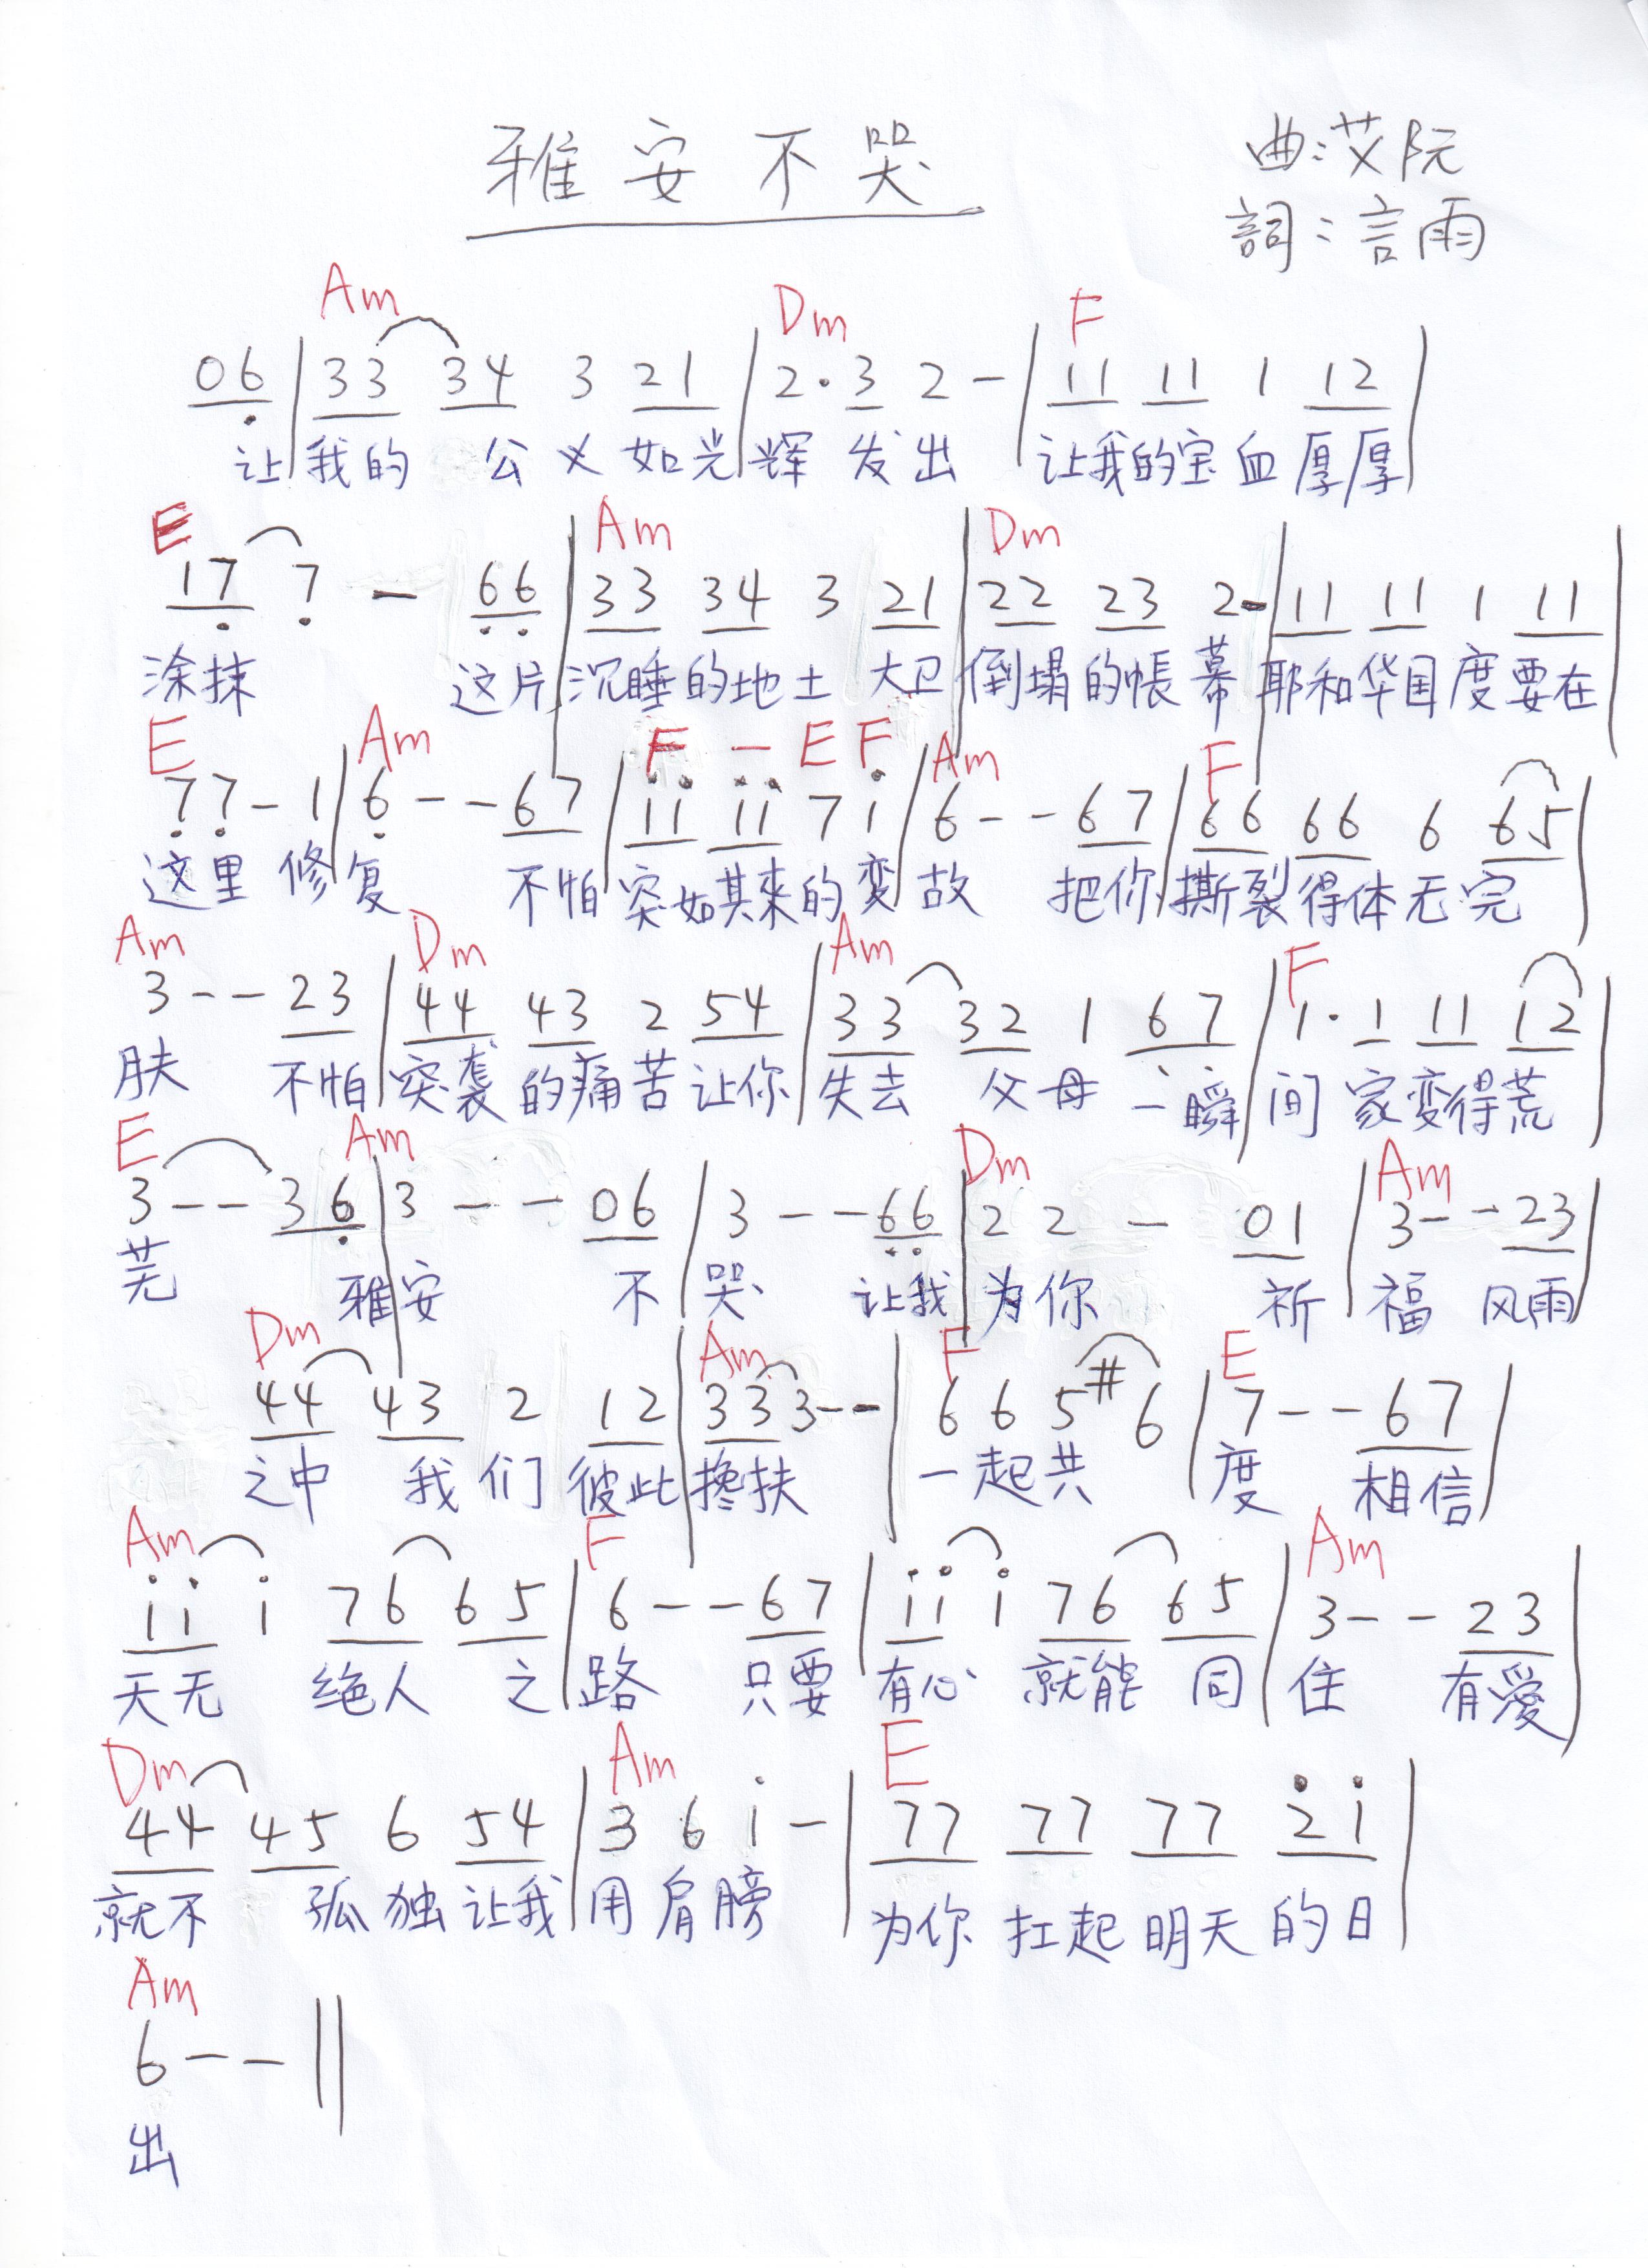 雅安不哭
曲:艾阮
詞:言雨
Am Dm F
06 | 33 34 3 21 | 2·3 2 - | 11 11 1 12 |
让我的 公义如光辉 发出 让我的宝血厚厚
E Am Dm
17 7 - 66 | 33 34 3 21 | 22 23 2- | 11 11 1 11 |
涂抹 这片沉睡的地土 大卫倒塌的帳幕 耶和华国度要在
E Am F - E F Am F
77 - 1 | 6 - - 67 | 11 11 7 1 | 6 - - 67 | 66 66 6 65 |
这里 修复 不怕突如其来的变故 把你撕裂得体无完
Am Dm Am F
3 - - 23 | 44 43 2 54 | 33 32 1 67 | 1·1 11 12 |
肤 不怕突袭的痛苦让你失去 父母 一瞬间 家变得荒
E Am Dm Am
3 - - 36 | 3 - - 06 | 3 - - 66 | 2 2 - 01 | 3 - - 23 |
芜 雅安 不哭 让我为你 祈福 风雨
Dm Am F E
44 43 2 12 | 33 3 - - | 6 6 5# 6 | 7 - - 67 |
之中 我们彼此搀扶 一起共 度 相信
Am F Am
11 1 76 65 | 6 - - 67 | 11 1 76 65 | 3 - - 23 |
天无 绝人 之路 只要 有心 就能 同住 有愛
Dm Am E
44 45 6 54 | 3 6 1 - | 77 77 77 21 |
就不 孤独让我用肩膀 为你扛起明天的日
Am
6 - - ||
出